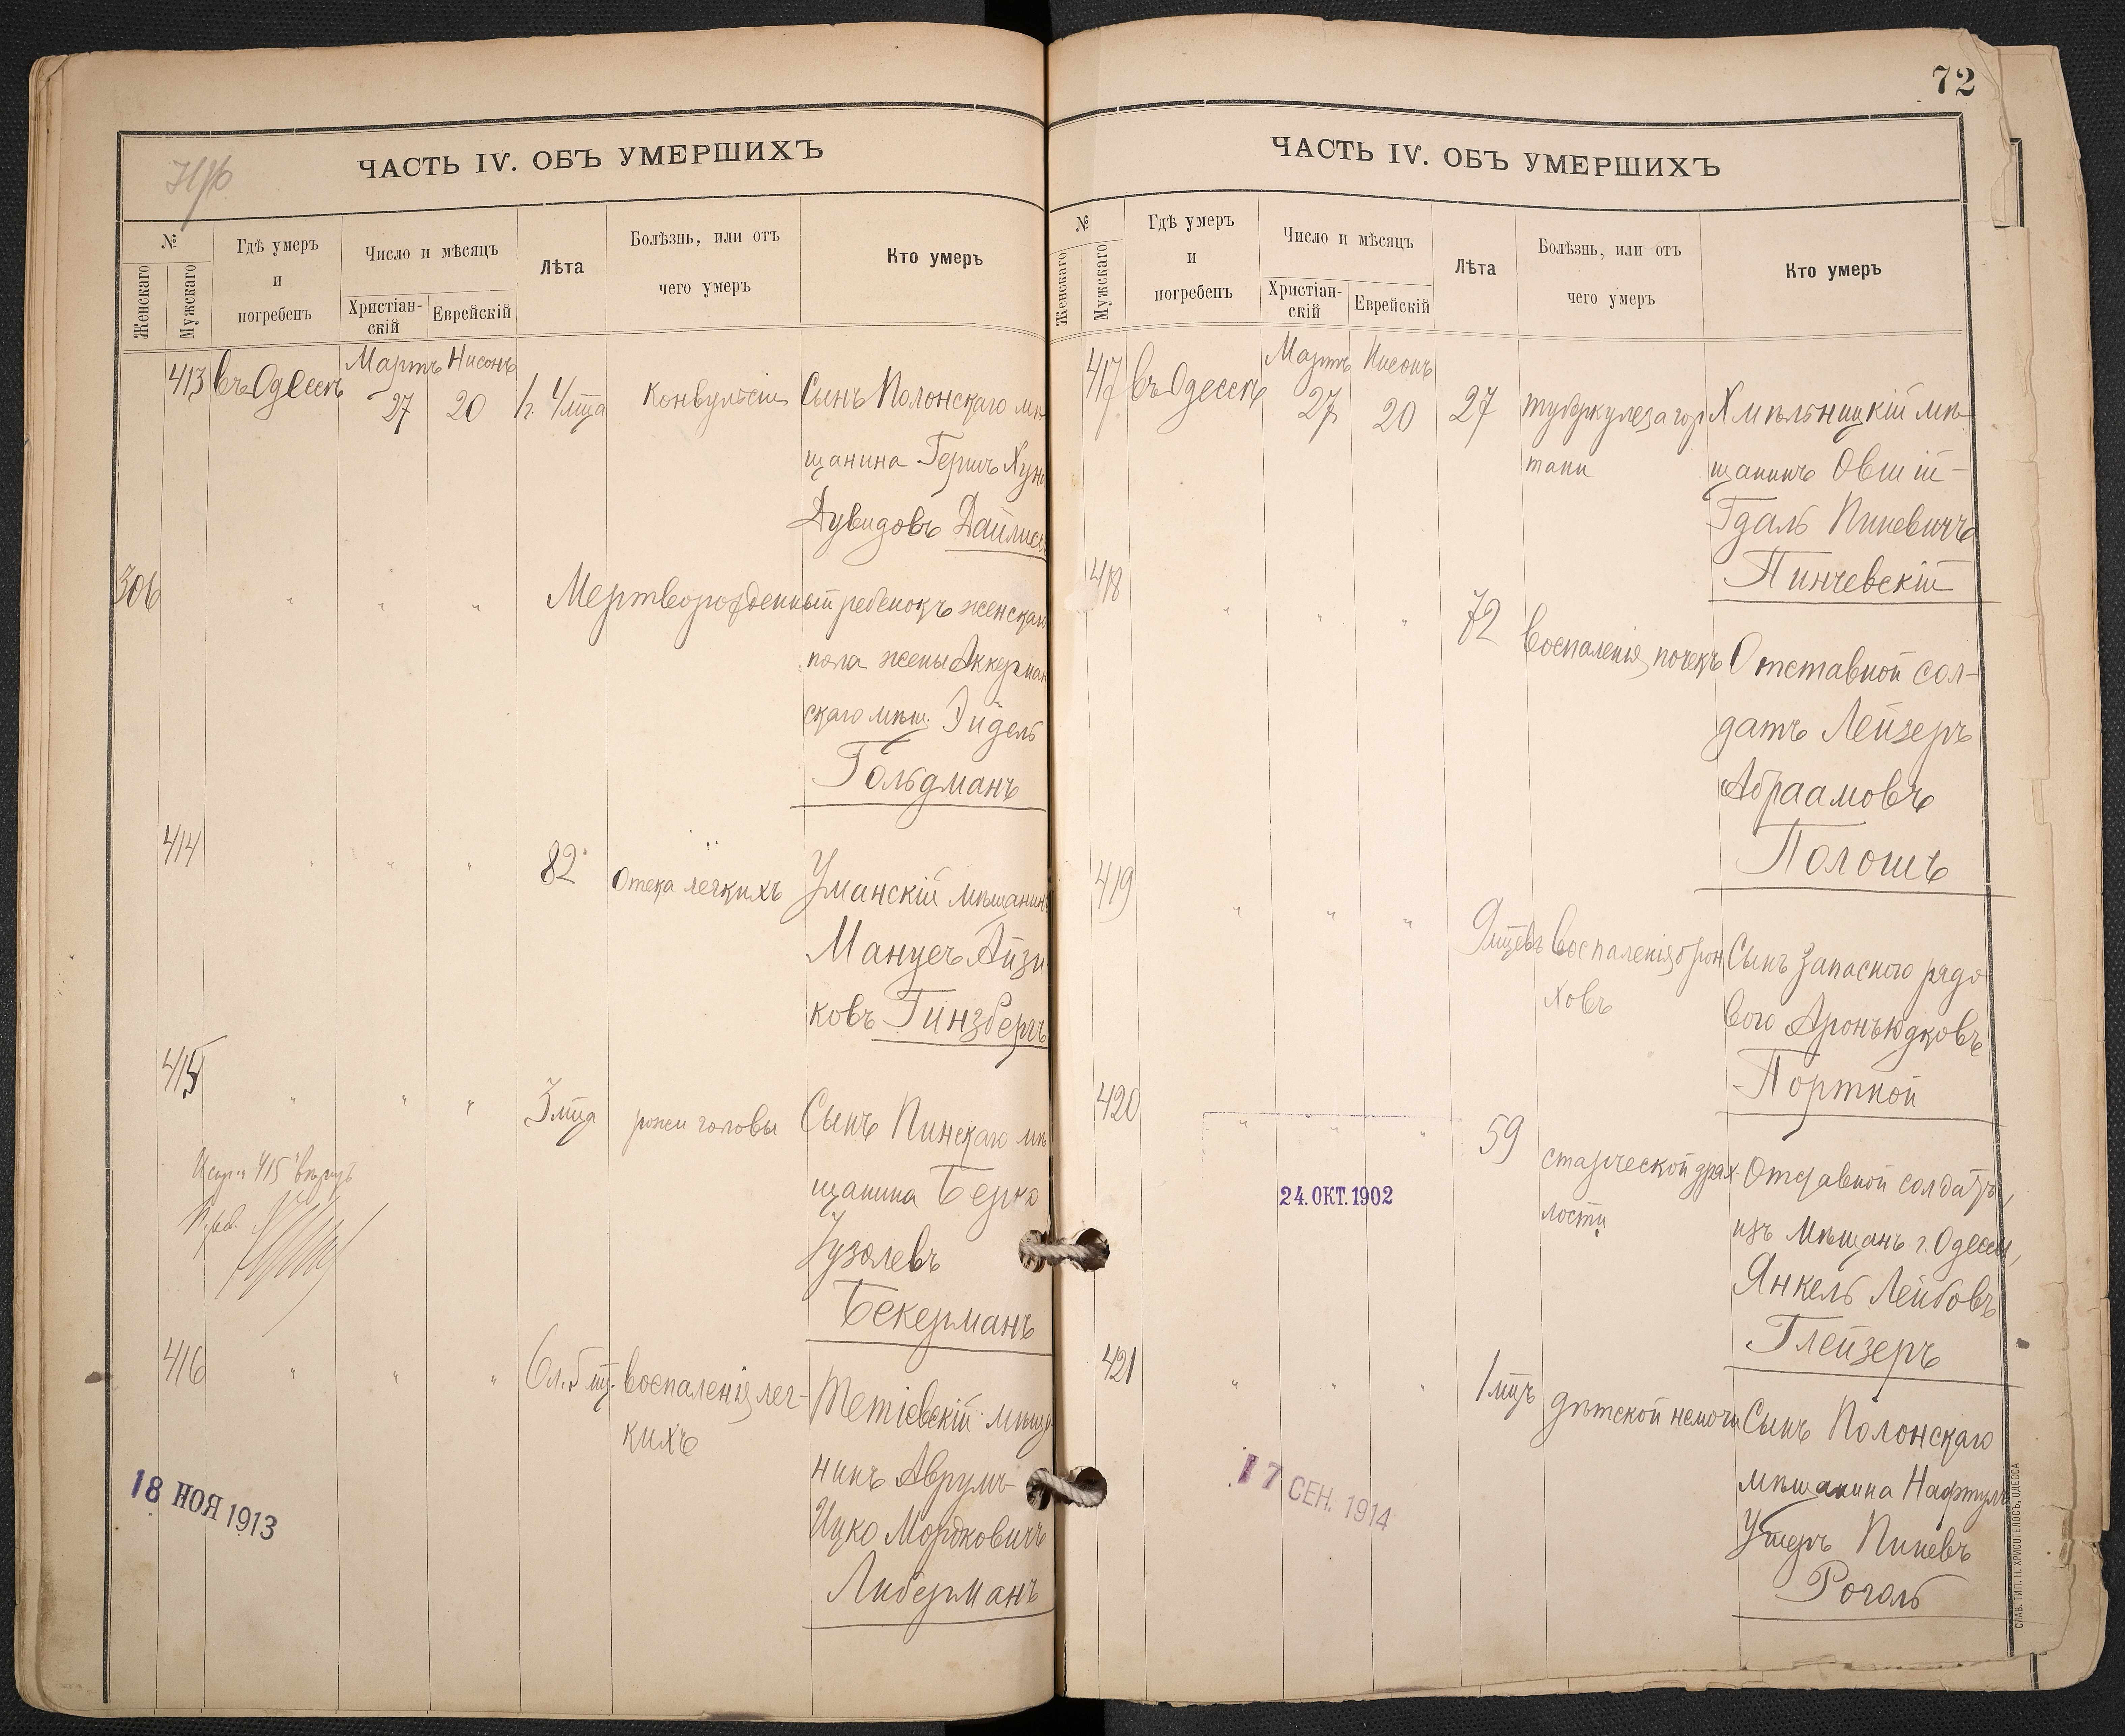 72
ЧАСТЬ IV. ОБЪ УМЕРШИХЪ
№
Женскаго
Мужскаго
Гдѣ умеръ
и
погребенъ
Число и мѣсяцъ
Христіан-
скій
Еврейскій
Лѣта
Болѣзнь, или отъ
чего умеръ
Кто умеръ
413 въ Одессѣ Мартъ 27 Нисонъ 20 1г. 4 мца Конвульсіи Сынъ Полонскаго мѣ-
щанина Гершъ Хунъ
Дувидовъ Дайлис
306 " " " Мертворожденный ребенокъ женскаго
пола жены Аккерман
скаго мѣщ. Эйдель
Гольдманъ
414 " " " 82 Отека легкихъ Уманскій мѣщанинъ
Манусъ Айзи
ковъ Гинзбергъ
415 " " " 3 мца рожи головы Сынъ Пинскаго мѣ
щанина Берко
Зузолевъ
Бекерманъ
416 " " " 6 л. 5 мц. воспаленія лег-
кихъ
Тетіевскій мѣща
нинъ Аврумъ-
Ицко Мордковичъ
Либерманъ
18 НОЯ 1913
ЧАСТЬ IV. ОБЪ УМЕРШИХЪ
№
Женскаго
Мужскаго
Гдѣ умеръ
и
погребенъ
Число и мѣсяцъ
Христіан-
скій
Еврейскій
Лѣта
Болѣзнь, или отъ
чего умеръ
Кто умеръ
417 въ Одессѣ Мартъ 27 Нисонъ 20 27 туберкулеза гор
тани
Хмѣльницкій мѣ-
щанинъ Овшій-
Гдаль Пиневичъ
Пинчевскій
418 " " " 72 воспаленія почекъ Отставной сол-
датъ Лейзеръ
Абраамовъ
Полошъ
419 " " " 9 мцевъ воспаленія брон
ховъ
Сынъ запасного рядо
вого Аронъ Юдковъ
Портной
420 " " " 59 старческой дрях
лости
Отставной солдатъ,
изъ мѣщанъ г. Одессы,
Янкель Лейбовъ
Глейзеръ
24. ОКТ. 1902
421 " " " 1 мцъ дѣтской немочи Сынъ Полонскаго
мѣщанина Нафтулъ
Ушеръ Пиневъ
Роголь
17 СЕН. 1914
СЛАВ. ТИП. Н. ХРИСОГЕЛОСЪ, ОДЕССА